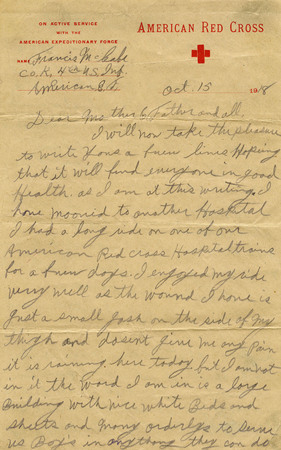 ON ACTIVE SERVICE
WITH THE
AMERICAN EXPEDITIONARY FORCE
AMERICAN RED CROSS
NAME Francis McCabe
Co. K. 4th U.S. Inf.
American E.F.
Oct. 15 1918
Dear Mother & Father and all.
I will now take the pleasure
to write Yous a fnew lines Hoping
that it will find everyone in good
Health. as I am at this writing. I
have mooved to another Hospital
I had a long ride on one of our
American Red cross Hospital trains
for a fnew days. I enjoyed my ride
verry well as the wound I have is
Just a small gash on the side of My
thigh and dosent give me any Pain
it is raining here today but I am not
in it the Ward I am in is a large
Building with nice white Beds and
sheets and Many orderlys to serve
us Boy's in anything they can do